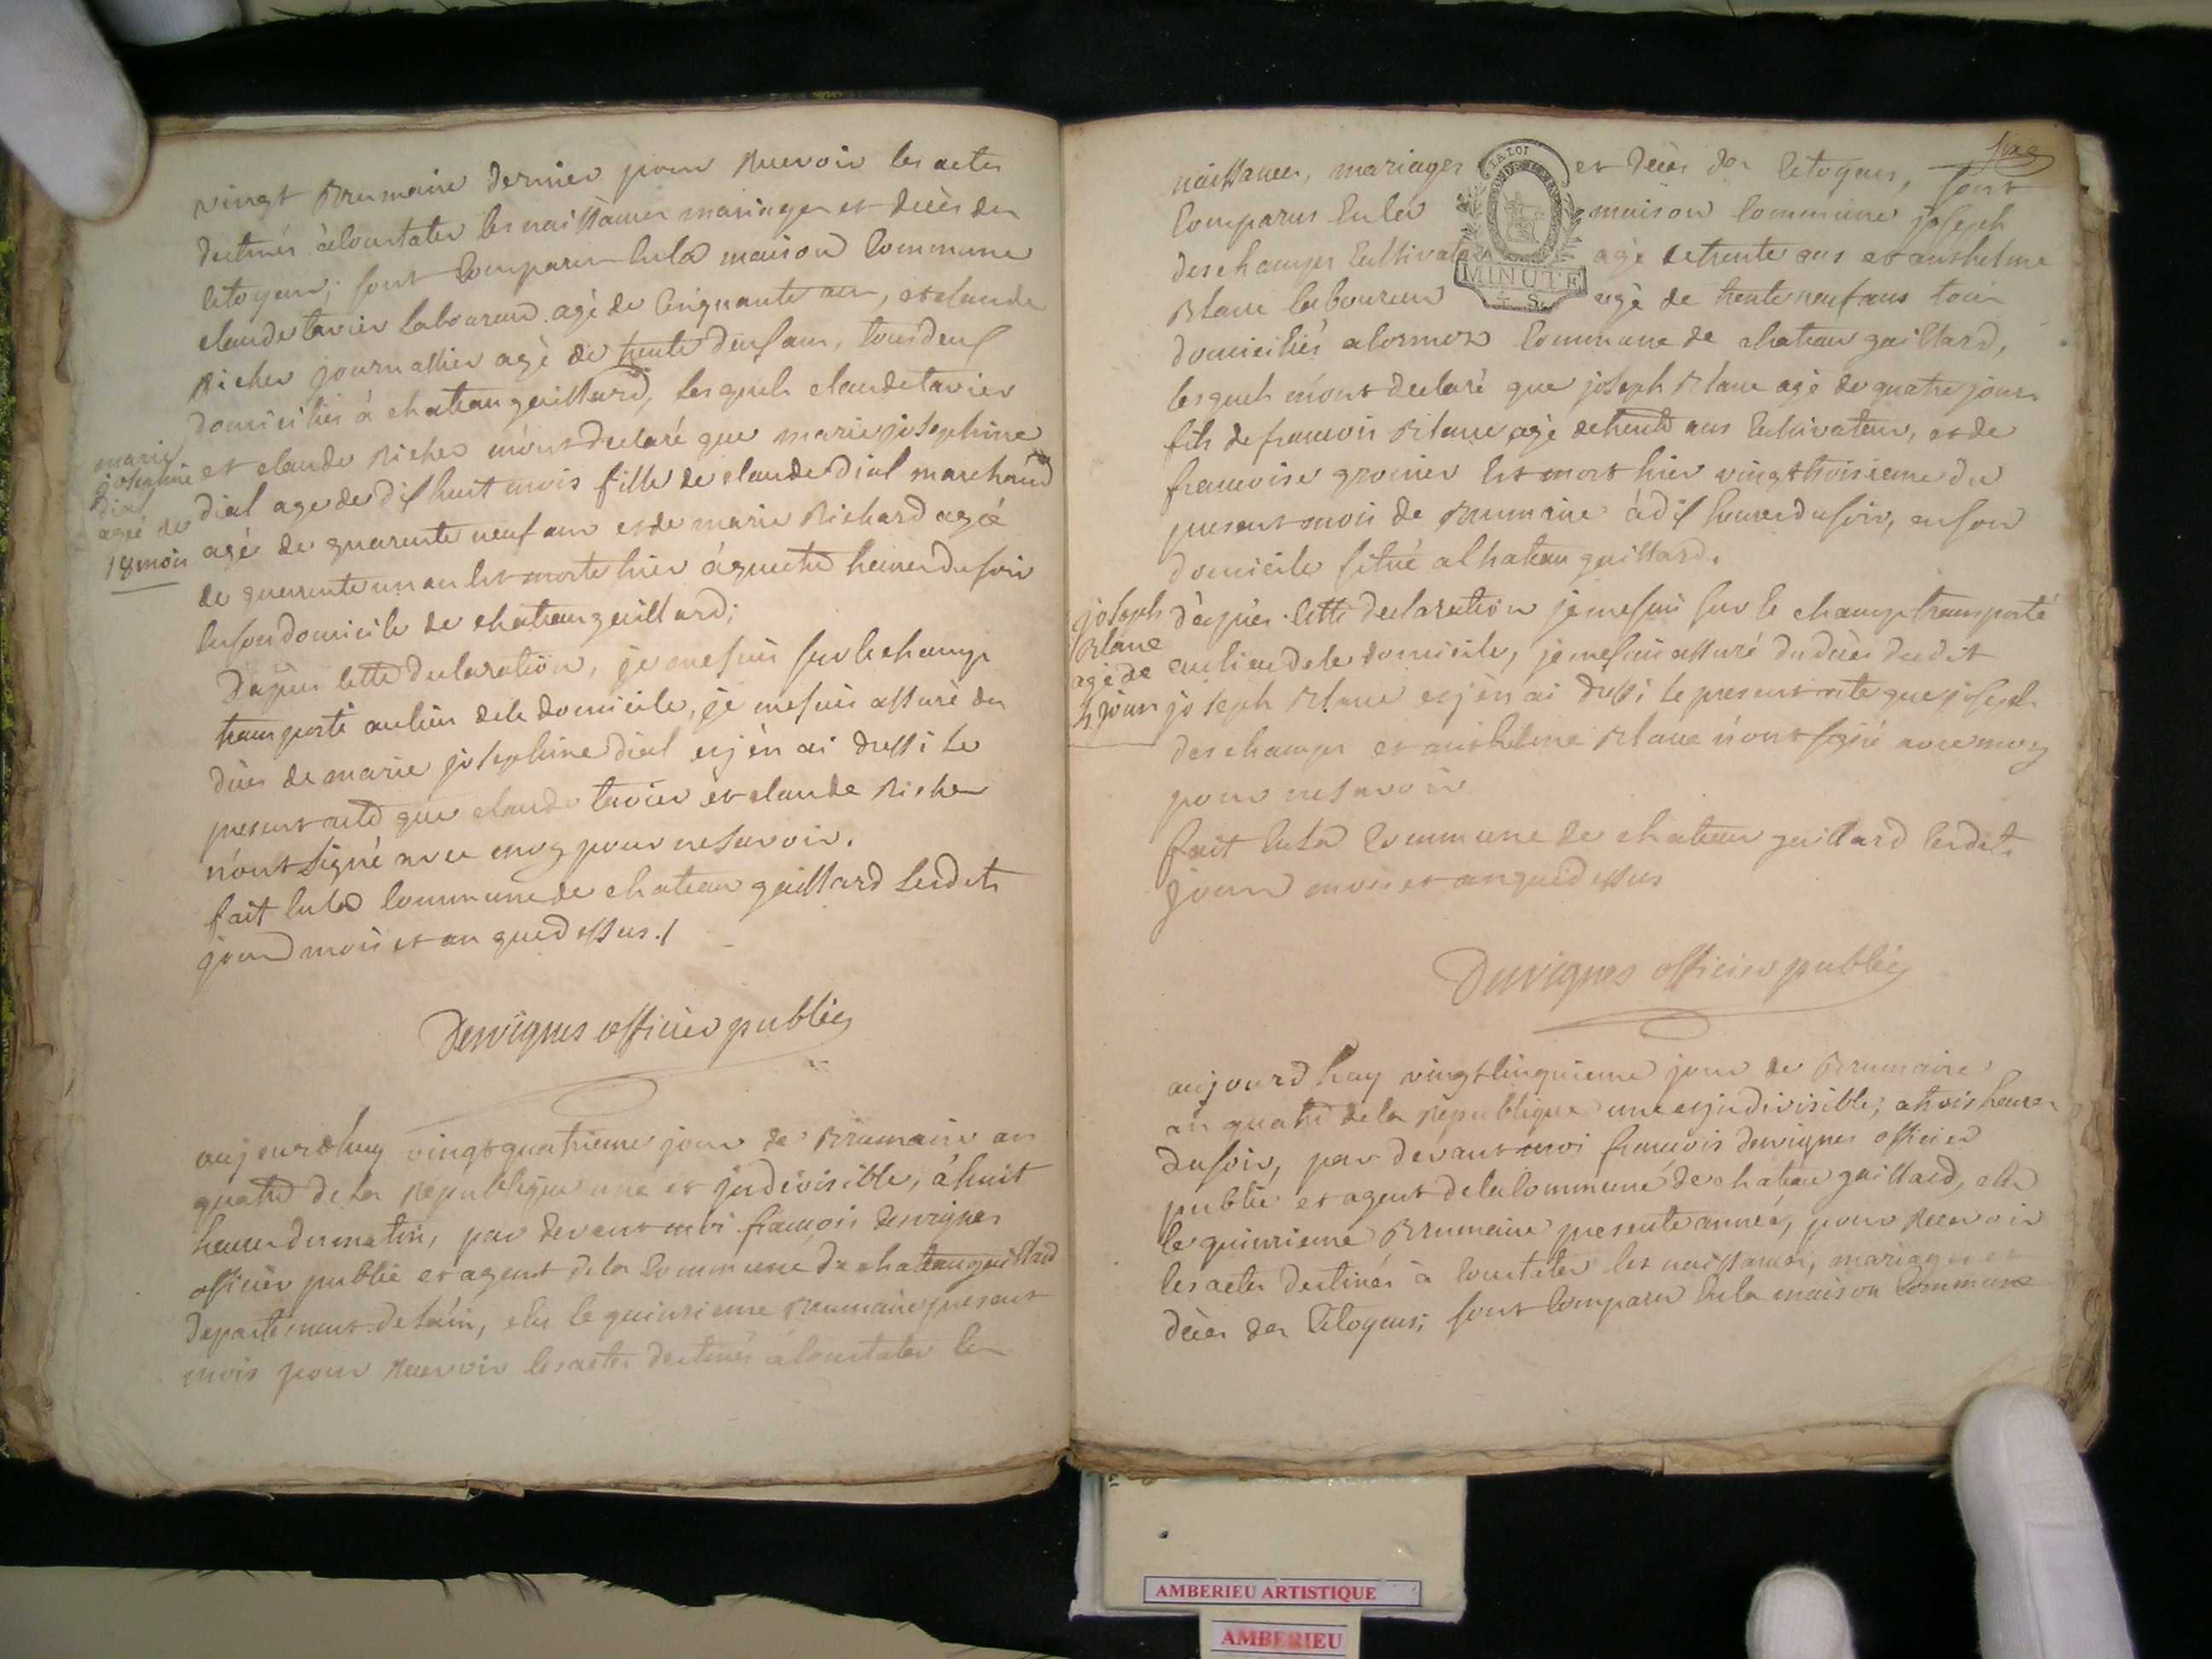 vingt Brumaire dernier pour Recevoir les actes
destinés à constater les naissances mariages et décès des
citoyens; sont comparus en la maison commune
claude tavier laboureur agé de cinquante ans, et claude
Richer journallier agé de trente deux ans, tous deux
domiciliés à chateau gaillard, lesquels claude tavier
et claude Richer m'ont declaré que marie josephine
dial agee de dix huit mois fille de claude dial marchand
agé de quarente neuf ans et de marie Richard agée
de quarente un an est morte hier à quatre heures du soir
en son domicile de chateau gaillard;
marie
josephine
dial
agée de
18 mois
D'apres cette declaration, je me suis sur le champ
transporté au lieu de le domicile, je me suis assuré du
décès de marie josephine dial et j'en ai dressé le
present acte que claude tavier et claude Richer
n'ont signé avec moy pour ne savoir.
fait en la commune de chateau gaillard lesdits
jour mois et an que dessus./
Desvignes officier public
aujourdhuy vingt quatrieme jour de Brumaire an
quatre de la Republique une et indivisible, à huit
heures du matin, par devant moi françois desvignes
officier public et agent de la commune de chateau gaillard
departement de l'ain, elu le quinzieme Brumaire present
mois pour Recevoir les actes destinés à constater les
naissances, mariages et décès des citoyens, sont
comparus en la maison commune joseph
deschamps cultivateur agé de trente ans et anthelme
Blanc laboureur agé de trente neuf ans tous
domiciliés a cormoz commune de chateau gaillard,
lesquels m'ont declaré que joseph Blanc agé de quatre jours
fils de francois Blanc agé de trente ans cultivateur, et de
francoise est mort hier vingt troisieme du
present mois de Brumaire à dix heures du soir, en son
domicile situé a chateau gaillard.
LA LOI
MINUTE
joseph
Blanc
agé de
4 jours
d'apres cette declaration je me suis sur le champ transporté
au lieu de le domicile, je me suis assuré du décès dudit
joseph Blanc et j'en ai dressé le present acte que joseph
deschamps et anthelme Blanc n'ont signé avec moy
pour ne savoir
fait en la commune de chateau gaillard lesdits
jour mois et an que dessus
Desvignes officier public
aujourdhuy vingt cinquieme jour de Brumaire
an quatre de la Republique une et indivisible, a trois heures
du soir, par devant moi francois desvignes officier
public et agent de la commune de chateau gaillard, elu
le quinzieme Brumaire presente année, pour Recevoir
les actes destinés à constater les naissances, mariages et
décès des citoyens; sont comparus en la maison commune
AMBERIEU ARTISTIQUE
AMBERIEU